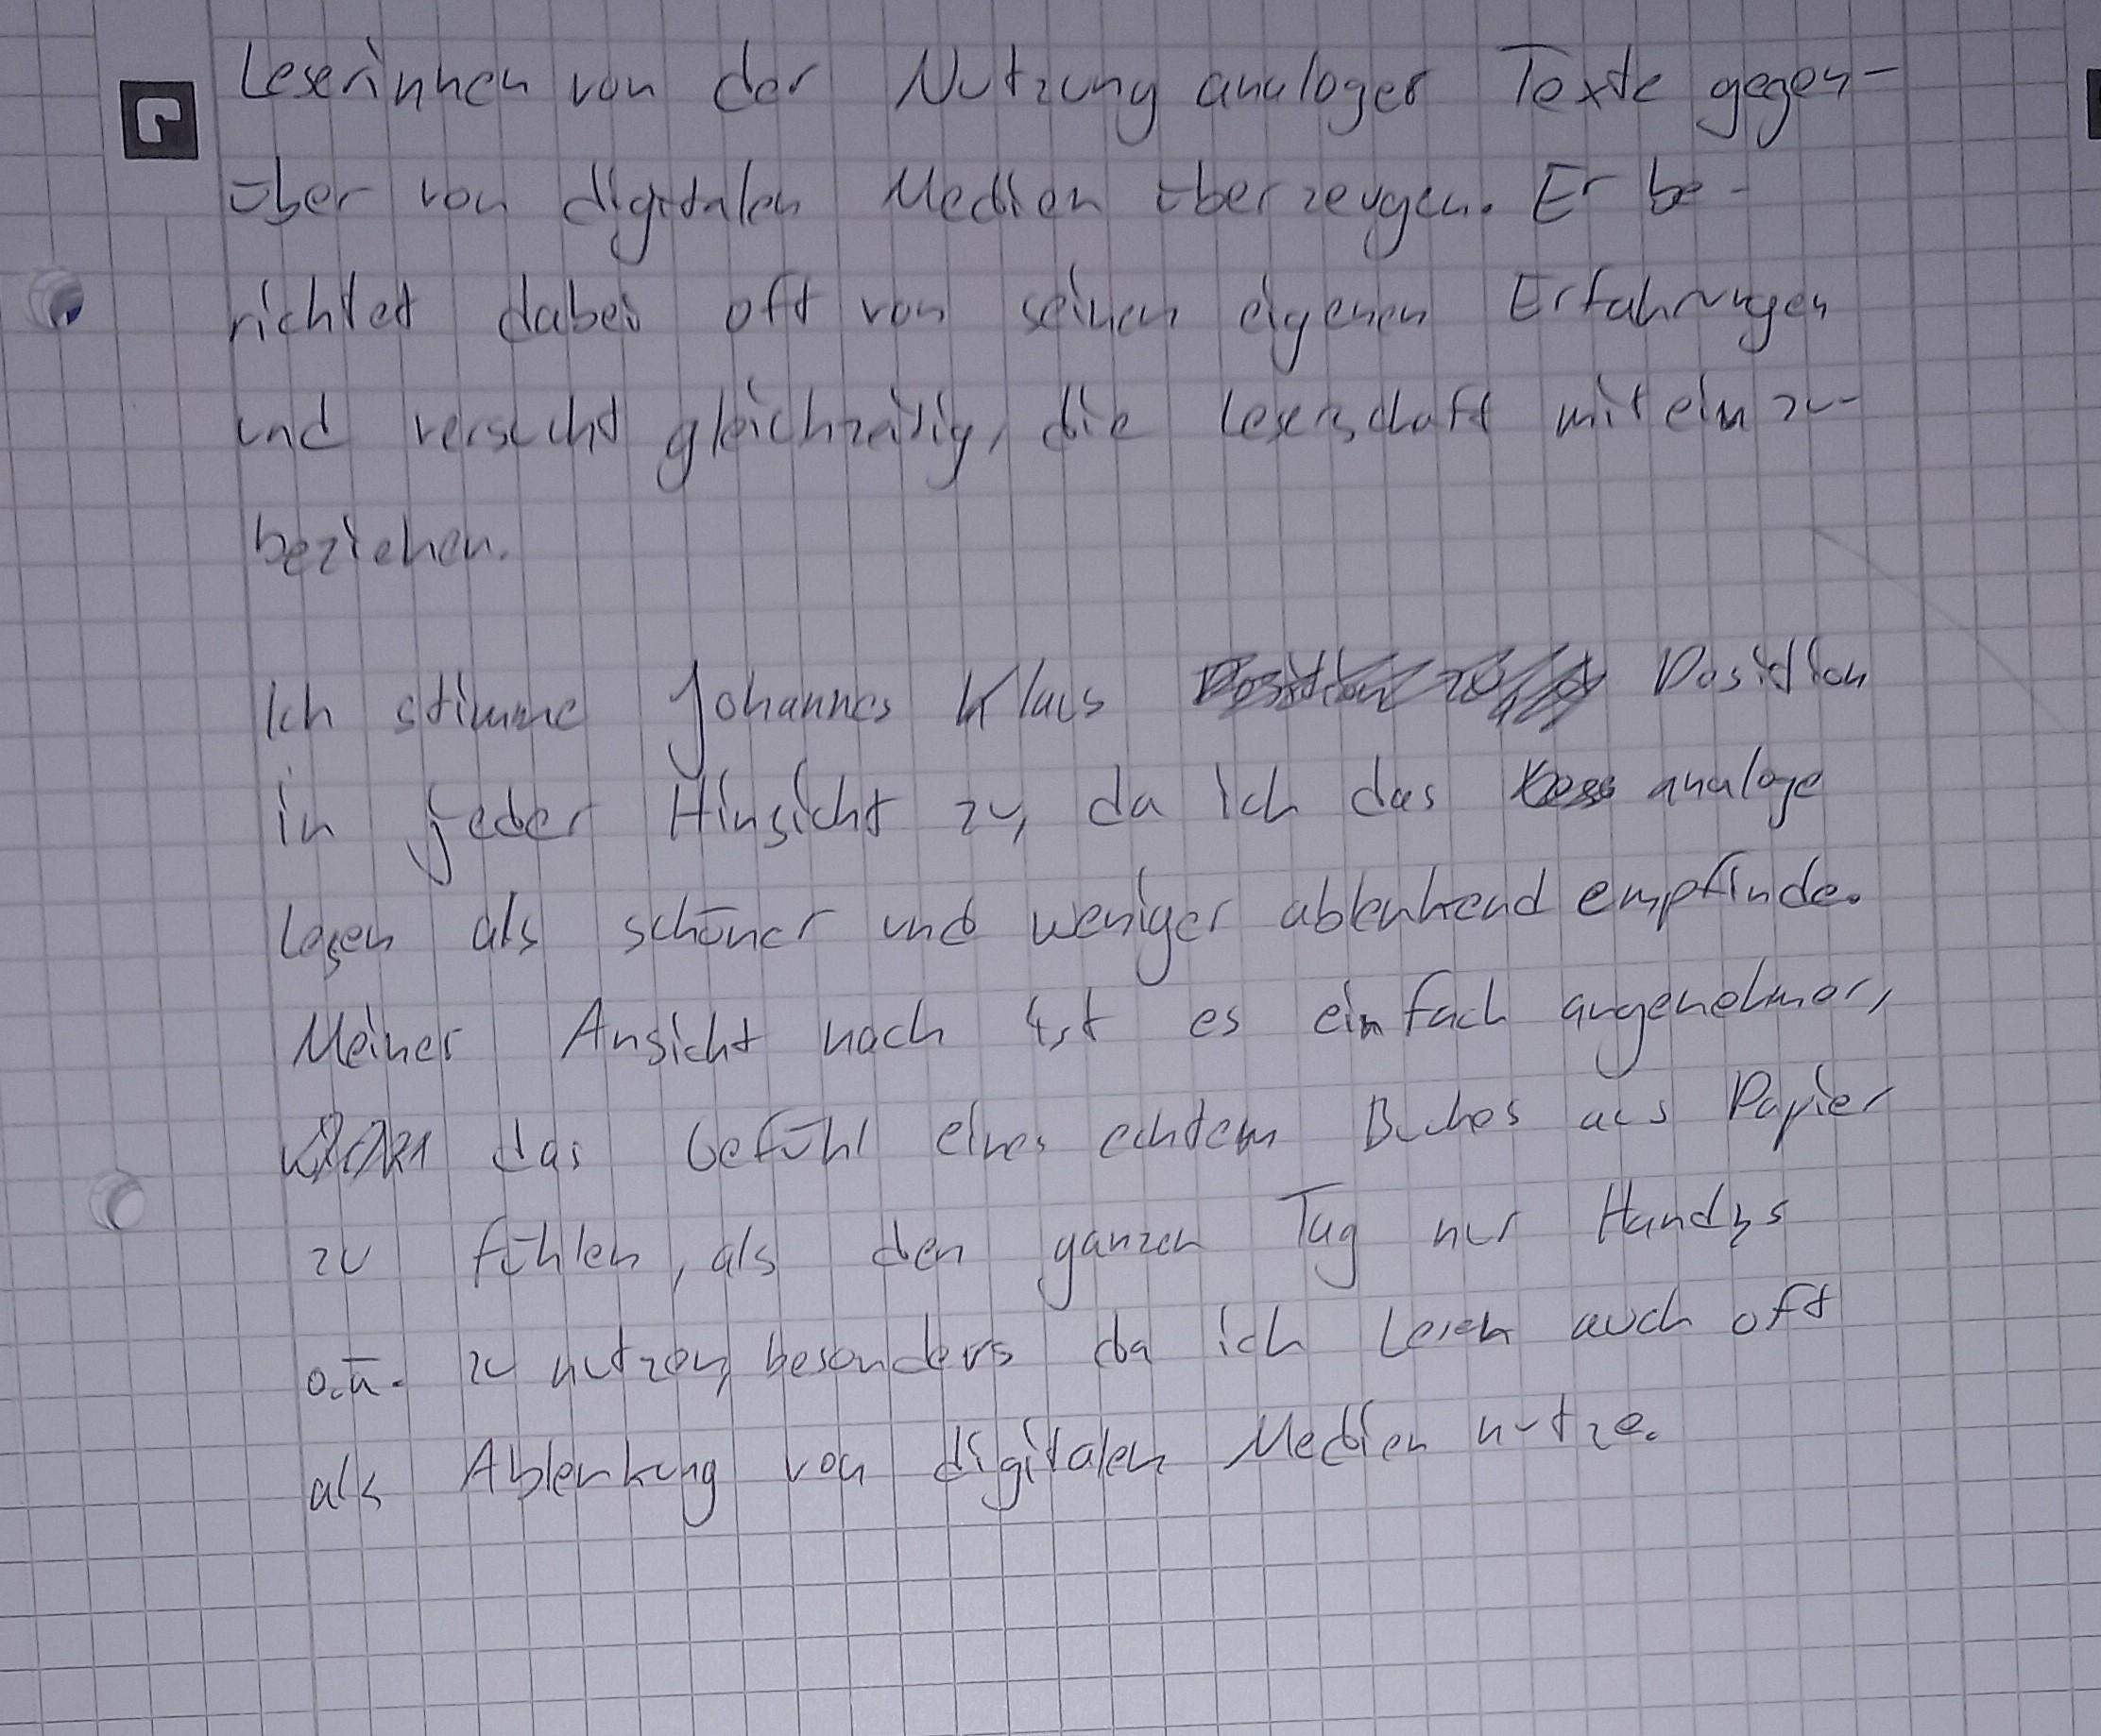 Leserinnen von der Nutzung analoger Texte gegen-
über von digitalen Medien überzeugen. Er be-
richtet dabei oft von seinen eigenen Erfahrungen
und versucht gleichzeitig, die Leserschaft mit einzu-
beziehen.
Ich stimme Johannes Klaus Position
in jeder Hinsicht zu, da ich das analoge
Lesen als schöner und weniger ablenkend empfinde.
Meiner Ansicht nach ist es einfach angenehmer,
das Gefühl eines echtem Buches aus Papier
zu fühlen, als den ganzen Tag nur Handys
o.ä. zu nutzen, besonders da ich Lesen auch oft
als Ablenkung von digitalen Medien nutze.